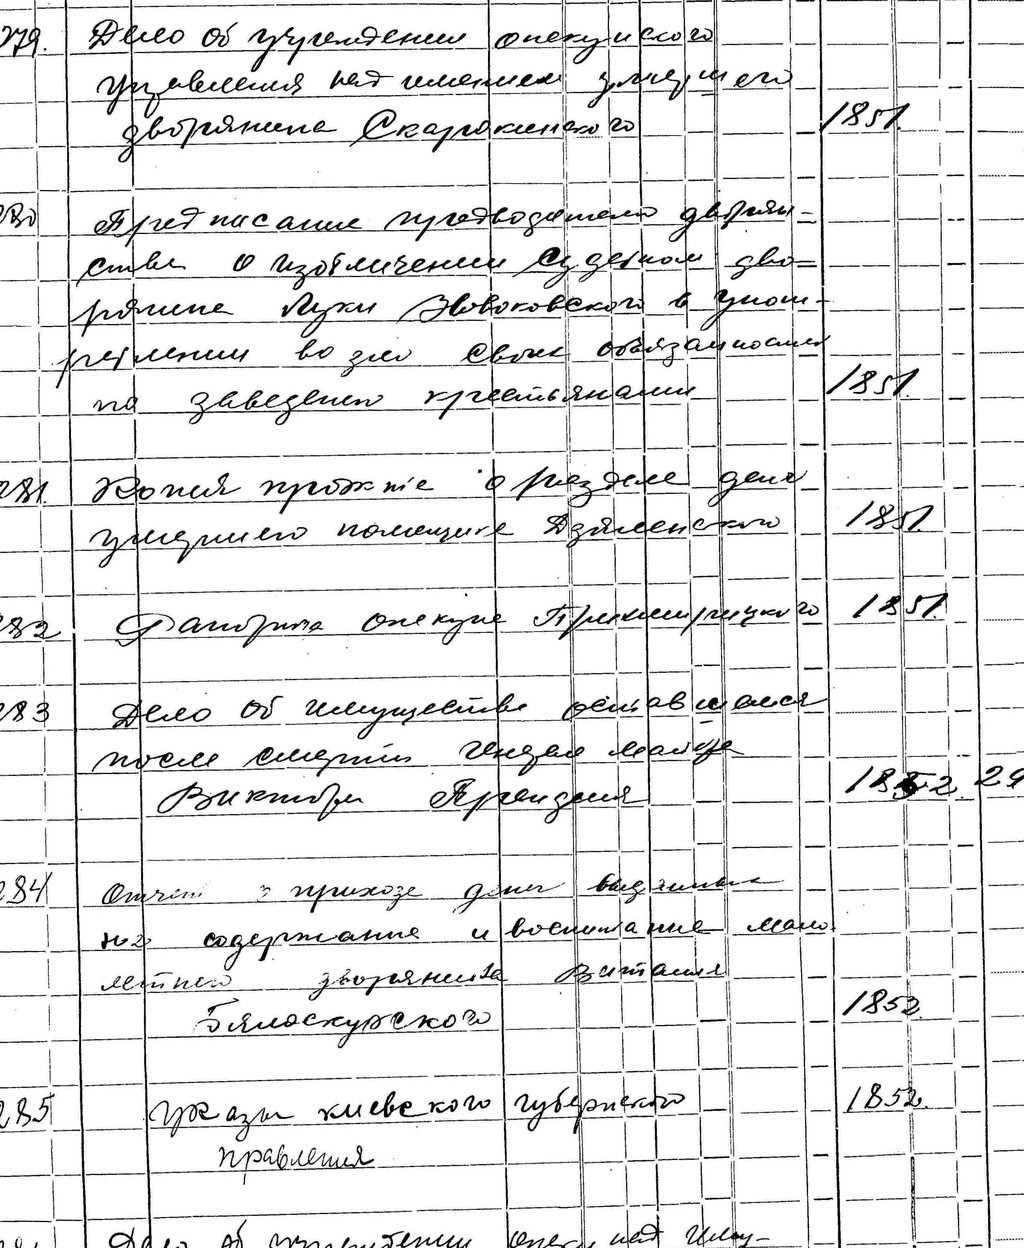 279. Дело об учреждении опекунского
управления над имением умершего
дворянина Скарокинского 1851.
280 Предписание предводителя дворян-
ства о изобличении судебном дво-
рянина Луки в упот-
реблении во зло своих обязанностей
по заведению крестьянами 1851.
281. Копия о разделе дела
умершего помещика 1851.
282 опекуна 1851.
283 Дело об имуществе оставшемся
после смерти майора
Виктора 1852. 24
284 Отчет о приходе денег выданных
на содержание и воспитание мало
летнего дворянина Виталия
Бялоскурского 1852.
285 Указы киевского губернского 1852.
правления
Дело об учреждении опеки над иму-